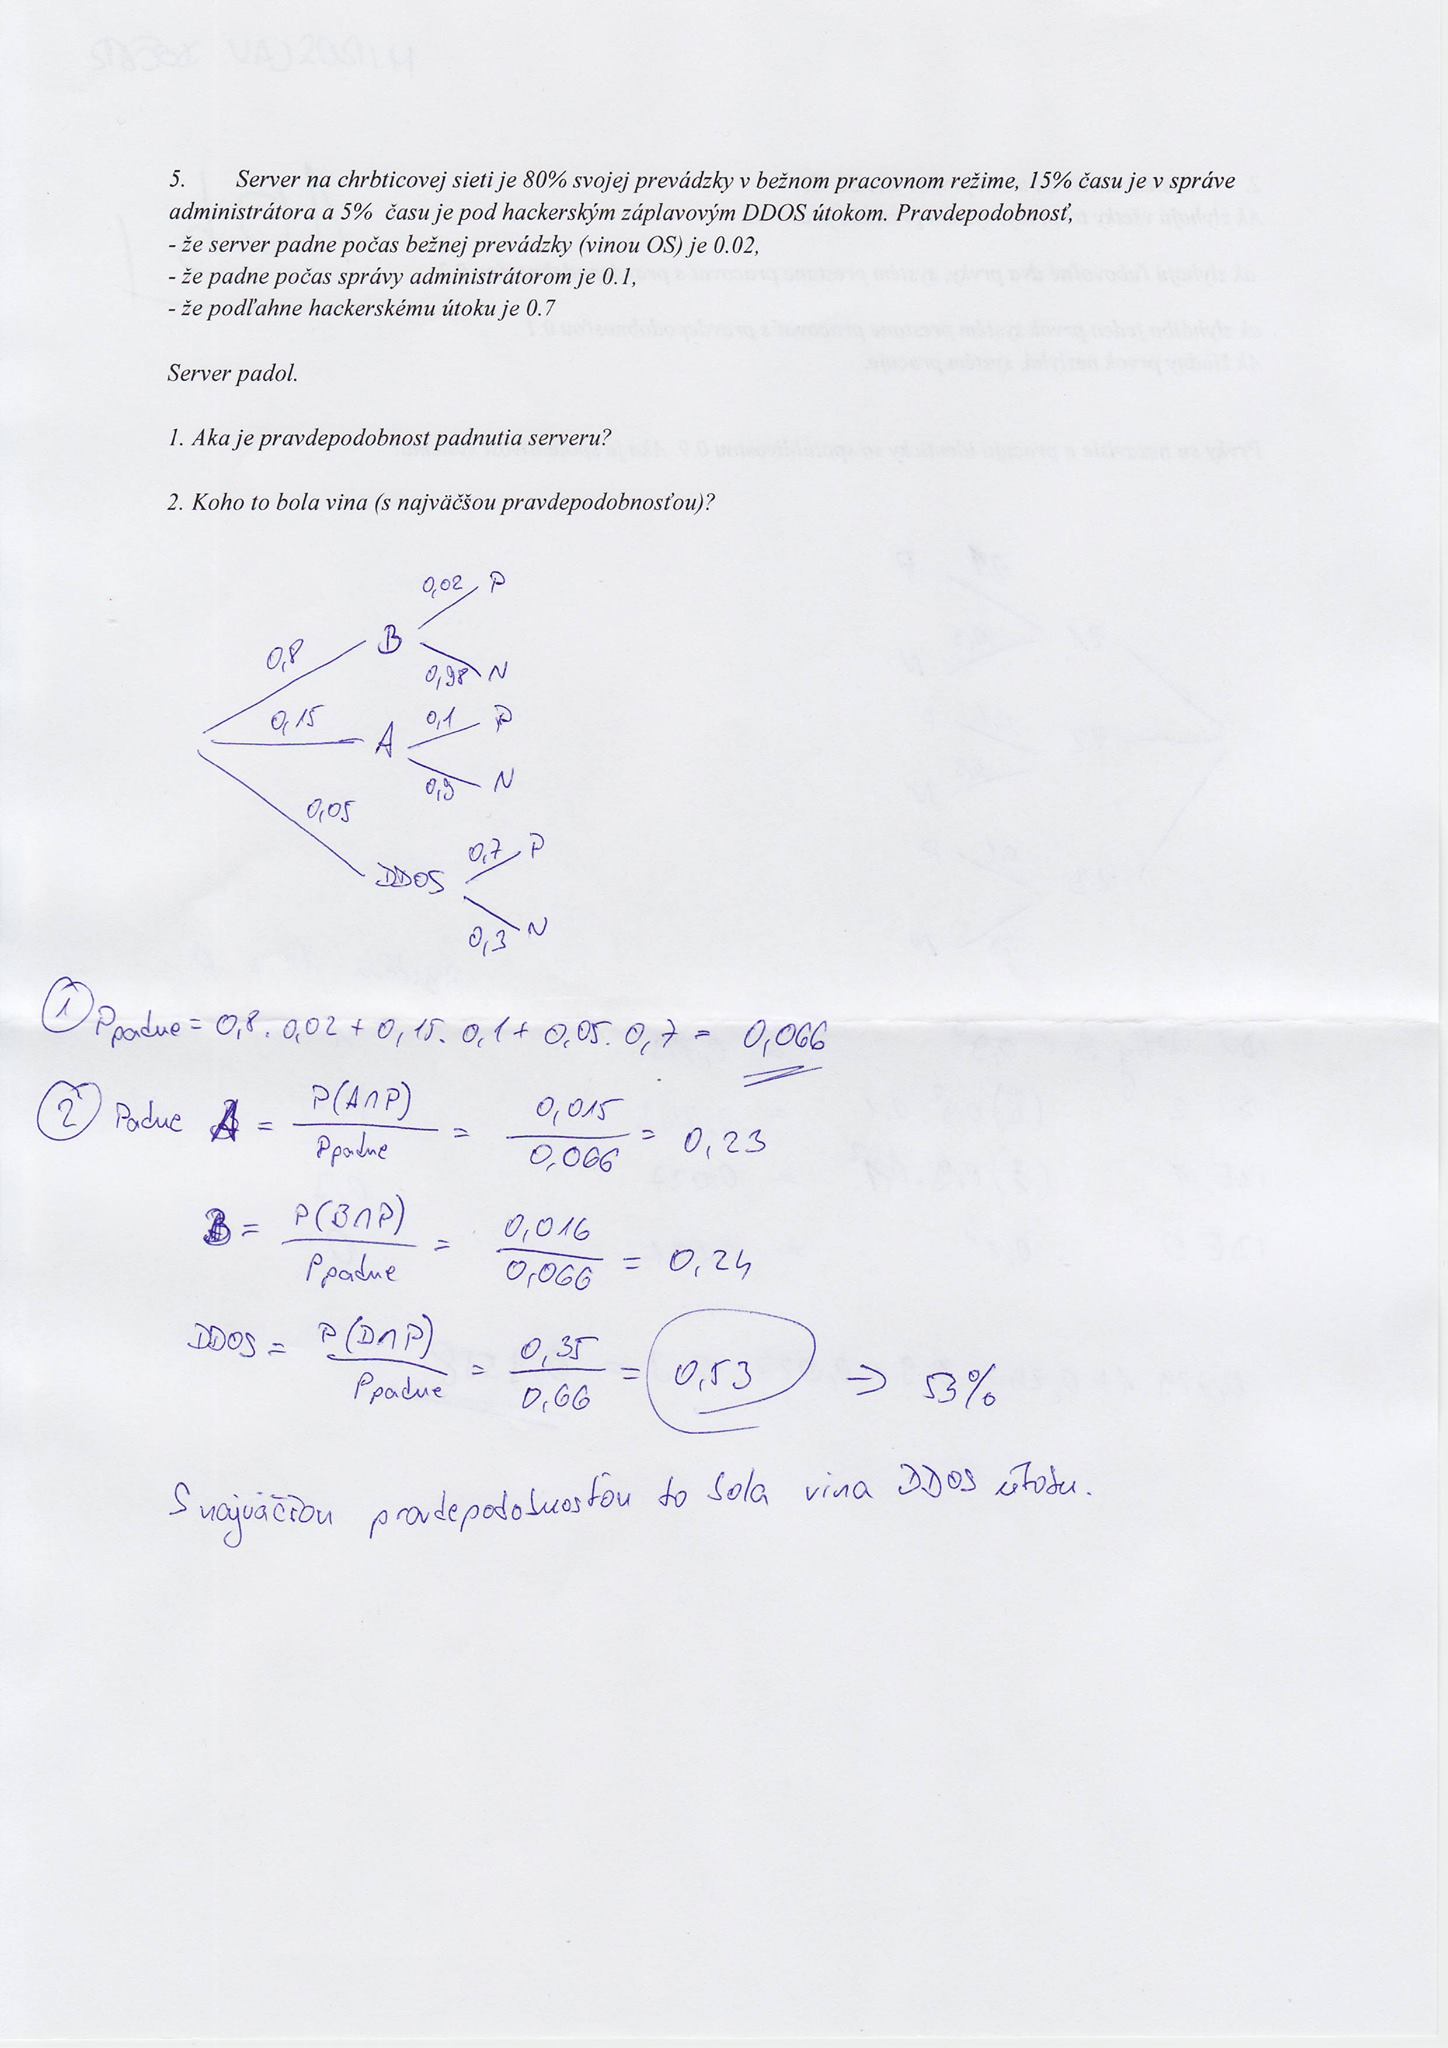 5. Server na chrbticovej sieti je 80% svojej prevádzky v bežnom pracovnom režime, 15% času je v správe
administrátora a 5% času je pod hackerským záplavovým DDOS útokom. Pravdepodobnosť,
- že server padne počas bežnej prevádzky (vinou OS) je 0.02,
- že padne počas správy administrátorom je 0.1,
- že podľahne hackerskému útoku je 0.7
Server padol.
1. Aka je pravdepodobnost padnutia serveru?
2. Koho to bola vina (s najväčšou pravdepodobnosťou)?
0,02 P
0,8 B
0,98 N
0,15 A 0,1 P
0,9 N
0,05
0,7 P
DDOS
0,3 N
1 Ppadne = 0,8 . 0,02 + 0,15 . 0,1 + 0,05 . 0,7 = 0,066
2 Padne A = P(A∩P) / Ppadne = 0,015 / 0,066 = 0,23
B = P(B∩P) / Ppadne = 0,016 / 0,066 = 0,24
DDOS = P(D∩P) / Ppadne = 0,35 / 0,66 = 0,53 => 53%
S najväčšou pravdepodobnosťou to bola vina DDOS útoku.